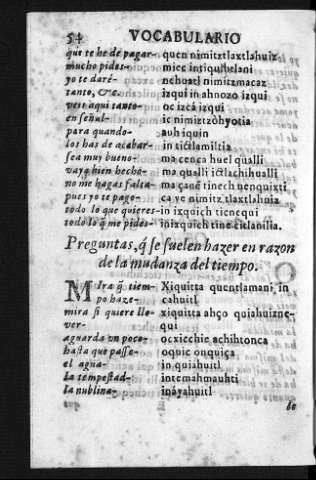 54 VOCABULARIO
que te he de pagar- quen nimitztlaxtlahuiz
mucho pides- miec intiquihelani
yo te daré- nehuatl nimitzmacaz
tanto, &c. izqui in ahnozo izqui
veis aqui tanto- oc izcá izqui
en señal- ic nimiztzòhyotia
para quando- auh iquin
los has de acabar- in tictlamiltia
sea muy bueno- ma cenca huel qualli
vaya bien hecho- ma qualli ictlachihualli
no me hagas falta- ma çanē tinech uenquixti
pues yo te pago- ca ye nimitz tlaxtlahuia
todo lo que quieres- in ixquich ticnequi
todo lo q̃ me pides- inisquich tinechitlanilia.
Preguntas, q̃ se suelen hazer en razon
de la mudanza del tiempo.
MIra q̃ tiem- Xiquitta quentlamani, in
po haze- cahuitl
mira si quiere llo- xiquitta ahço quiahuizne-
ver- qui
aguarda vn poco- ocxicchie achihtonca
hasta que passe- oquic onquiça
el agua- in quiahuitl
la tempestad- intemahmauhti
la nublina- inàyahuitl
de